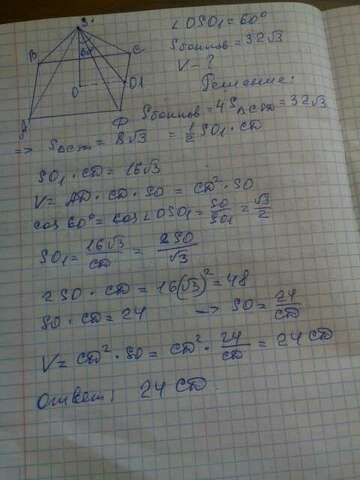 S
B
C
60°
O
O1
A
D
∠OSO₁ = 60°
Sбоков = 32√3
V - ?
Решение:
Sбоков = 4S△CSD = 32√3
=> S△CSD = 8√3 = 1/2 SO₁ · CD
SO₁ · CD = 16√3
V = AD · CD · SO = CD² · SO
cos 60° = cos ∠OSO₁ = SO/SO₁ = √3/2
SO₁ = 16√3/CD = 2SO/√3
2SO · CD = 16(√3)² = 48
SO · CD = 24 -> SO = 24/CD
V = CD² · SO = CD² · 24/CD = 24 CD
Ответ: 24 CD